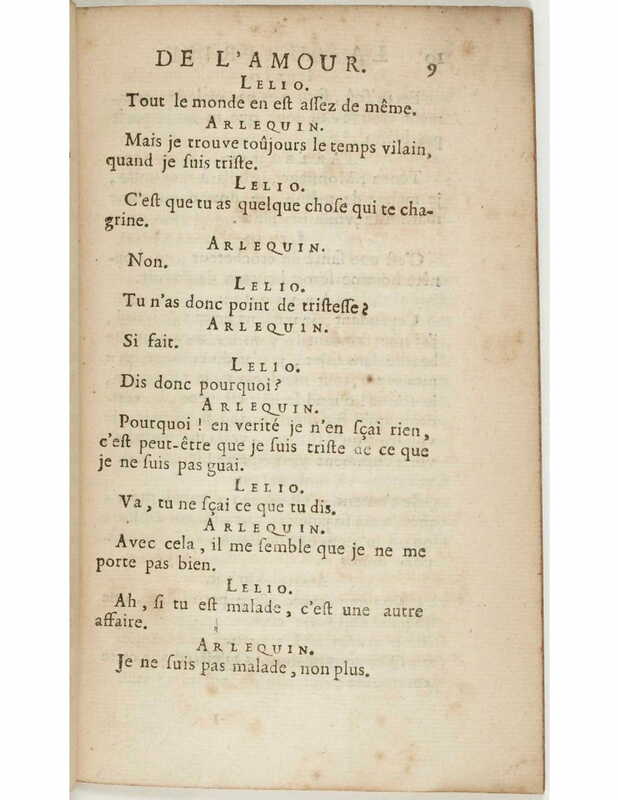 DE L'AMOUR. 9
LELIO.
Tout le monde en eſt aſſez de même.
ARLEQUIN.
Mais je trouve toûjours le temps vilain,
quand je ſuis triſte.
LELIO.
C'eſt que tu as quelque choſe qui te cha-
grine.
ARLEQUIN.
Non.
LELIO.
Tu n'as donc point de triſteſſe?
ARLEQUIN.
Si fait.
LELIO.
Dis donc pourquoi?
ARLEQUIN.
Pourquoi ! en verité je n'en ſçai rien,
c'eſt peut-être que je ſuis triſte de ce que
je ne ſuis pas guai.
LELIO.
Va, tu ne ſçai ce que tu dis.
ARLEQUIN.
Avec cela, il me ſemble que je ne me
porte pas bien.
LELIO.
Ah, ſi tu eſt malade, c'eſt une autre
affaire.
ARLEQUIN.
Je ne ſuis pas malade, non plus.